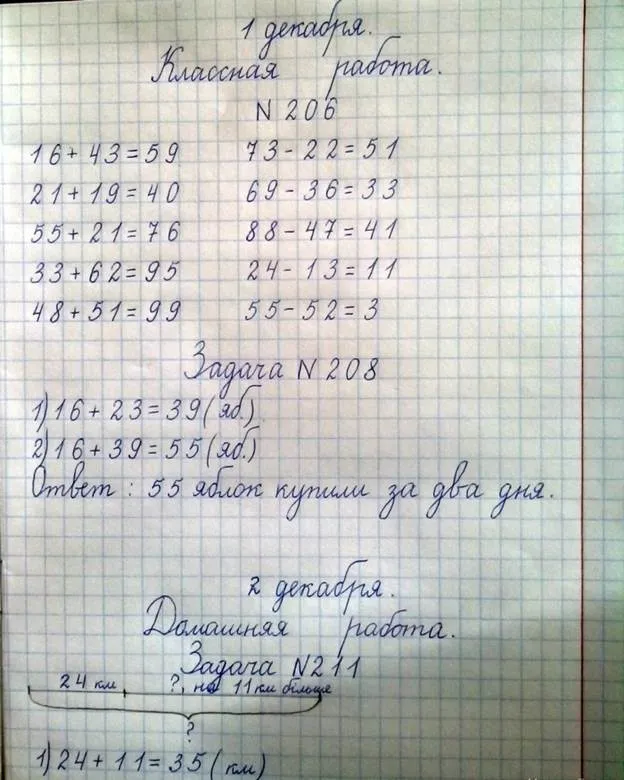 1 декабря.
Классная работа.
N 206
16 + 43 = 59 73 - 22 = 51
21 + 19 = 40 69 - 36 = 33
55 + 21 = 76 88 - 47 = 41
33 + 62 = 95 24 - 13 = 11
48 + 51 = 99 55 - 52 = 3
Задача N 208
1) 16 + 23 = 39 (яб.)
2) 16 + 39 = 55 (яб.)
Ответ : 55 яблок купили за два дня.
2 декабря.
Домашняя работа.
Задача N 211
24 км ?, на 11 км більше
?
1) 24 + 11 = 35 (км)